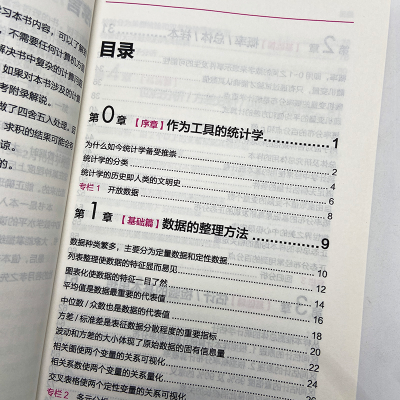 习本书内容,可以了解
不需要任何计算机方
解决书中复杂的计算问
如果对本书涉及的计算
考附录解说。
做了四舍五入处理。
求积的结果可能会
目录
第0章 【序章】作为工具的统计学 1
为什么如今统计学备受推崇 2
统计学的分类 4
统计学的历史即人类的文明史 6
专栏1 开放数据 8
第1章 【基础篇】数据的整理方法 9
数据种类繁多,主要分为定量数据和定性数据 10
列表整理使数据的特征显而易见 12
图表化使数据的特征一目了然 14
平均值是数据最重要的代表值 16
中位数/众数也是数据的代表值 18
方差/标准差是表征数据分散程度的重要指标 20
波动和方差的大小体现了原始数据的固有信息量 22
相关图使两个变量的关系可视化 24
相关系数使两个变量的关系量化 26
交叉表格使两个定性变量的关系可视化
专栏2 多元分析